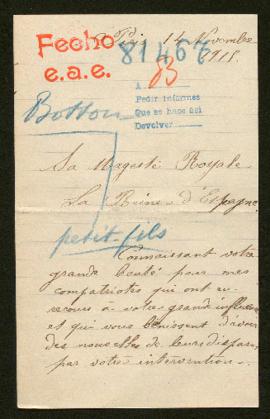 Fecho
e.a.e.
14 Novembre
1915
81468
83
A
Pedir informes
Que se hace así
Devolver
Sa Magesté Royale
La Reine d'Espagne
petit fils
Connaissant votre
grande bonté pour mes
compatriotes qui ont eu
recours a votre grande influence
et qui vous bénissent d'avoir
des nouvelles de leurs disparus
par votre intervention